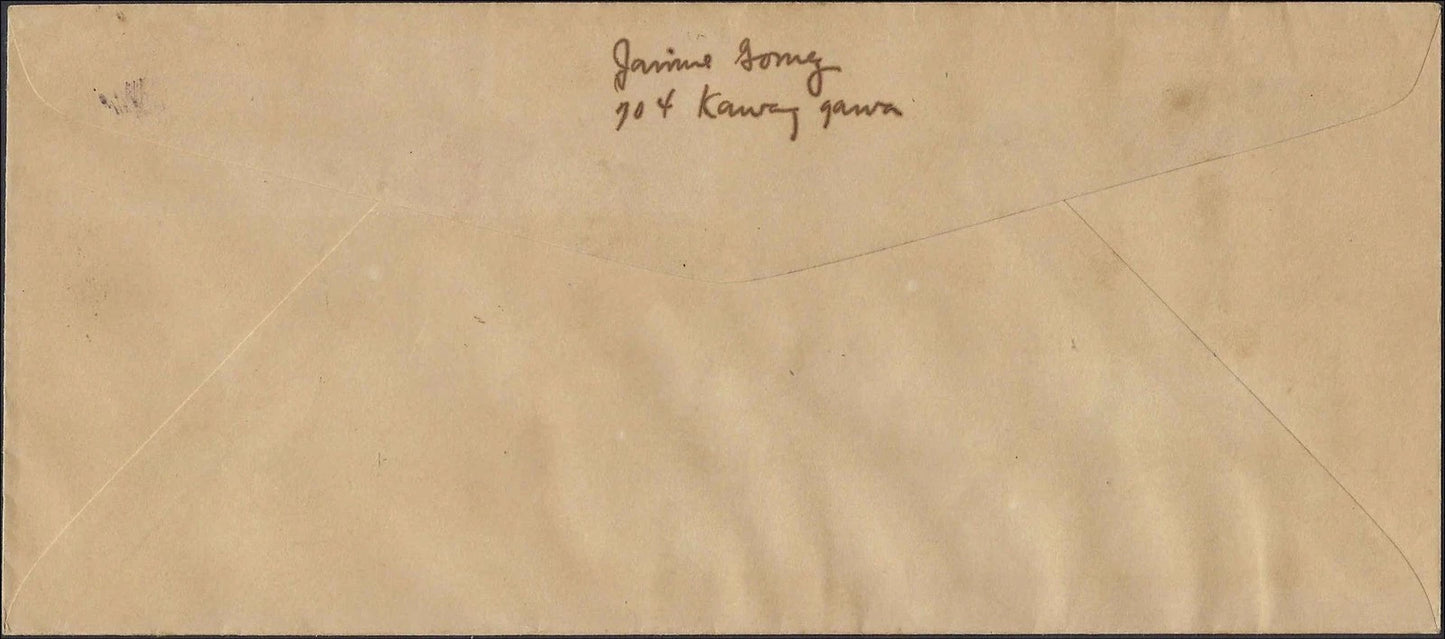 Jaime Gomez
704 Kawaygawa